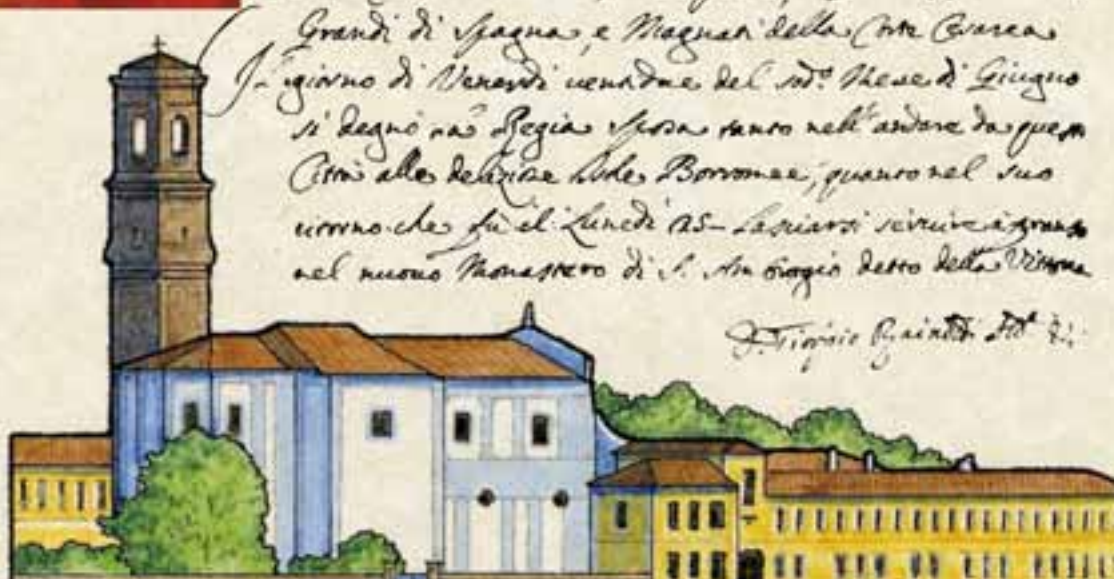 Grandi di Spagna, e Magnati della Corte Cesarea
Il giorno di Venerdì ventidue del sod.º Mese di Giugno
si degnò Regia Sposa tanto nell'andare da questa
Città alle deliziose Isole Borromee, quanto nel suo
ritorno che fù il Lunedì 25 Lasciarsi servire a pranzo
nel nuovo Monastero di S. Ambrogio detto della Vittoria